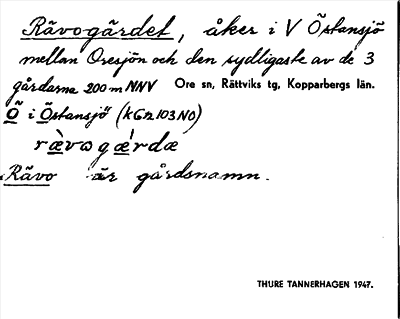 Rävogärdet, åker i V Östansjö
mellan Oresjön och den sydligaste av de 3
gårdarna 200 m NNV Ore sn, Rättviks tg, Kopparbergs län.
Ö i Östansjö (kGr 103 NO)
rävωgǽrdæ
Rävo är gårdsnamn.
THURE TANNERHAGEN 1947.